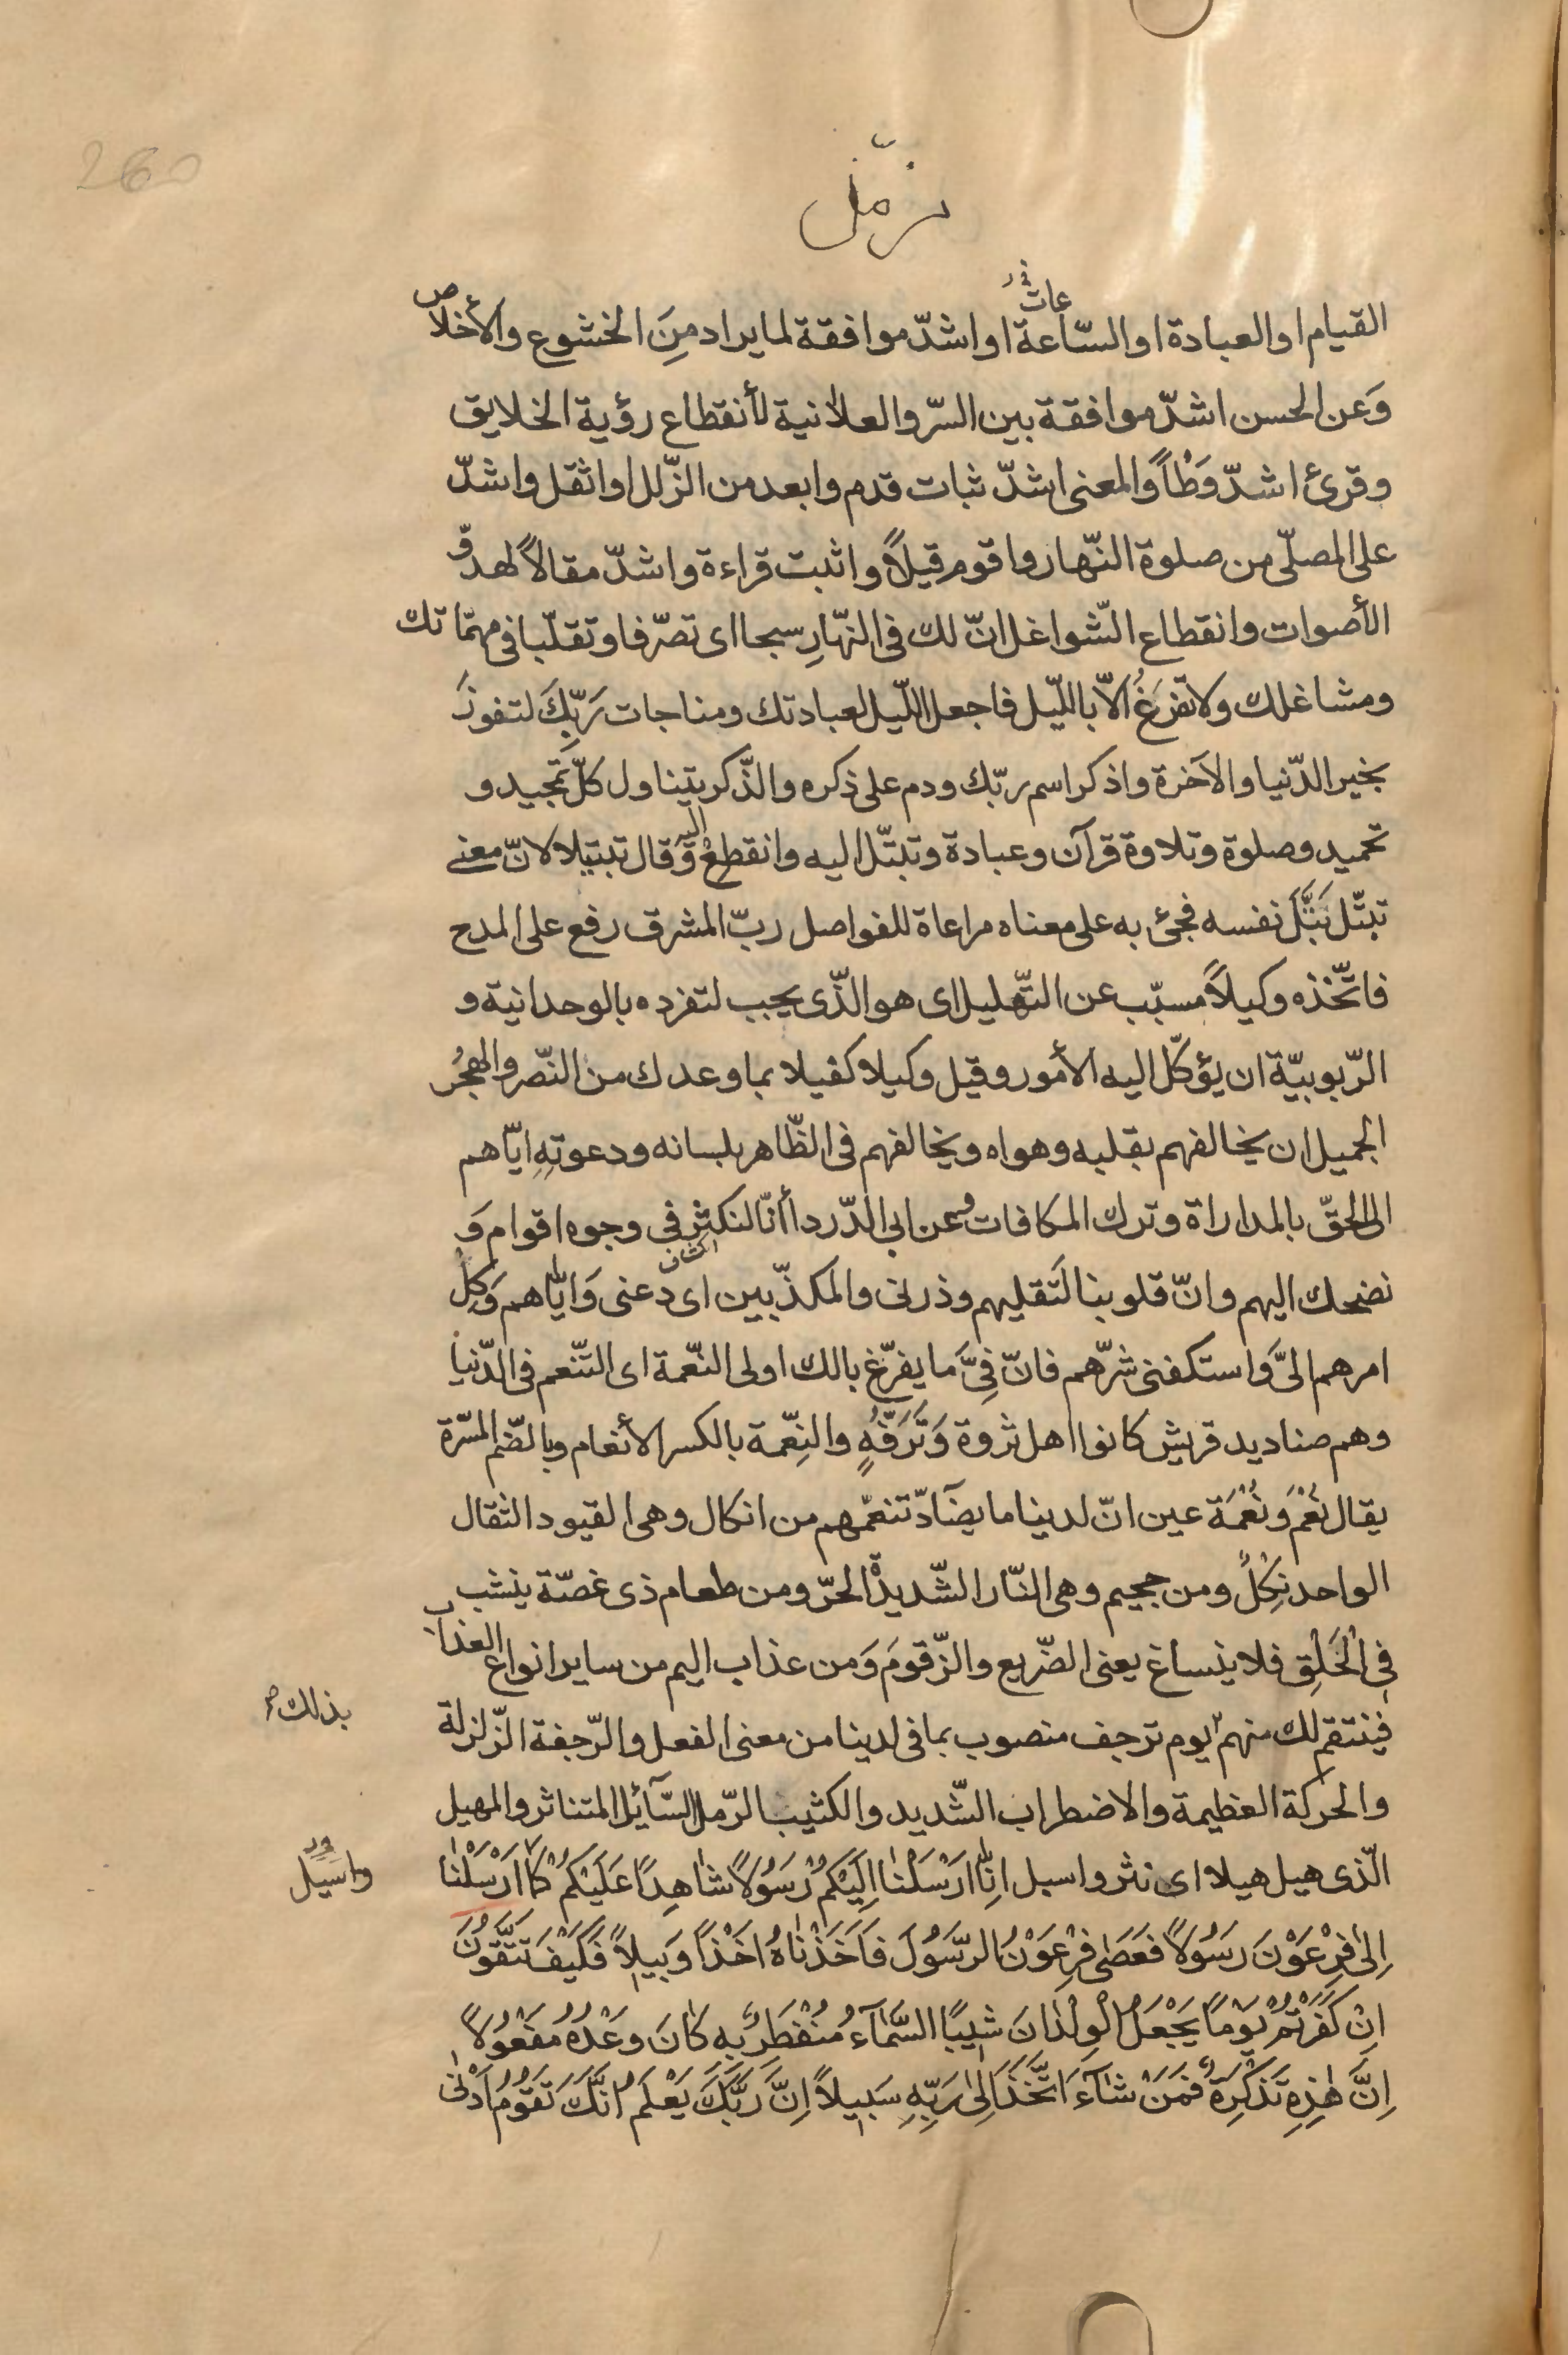 260
مزّمّل
القيام او العبادة او السّاعة او اشدّ موافقة لما يراد مِنَ الخشوع والأخلاص
وَعن الحسن اشدّ موافقة بين السرّ والعلانية لأنقطاع رؤية الخلايق
وقرئ اشدّ وَطْأً والمعنى اشدّ ثبات قدم وابعد من الزّلل او اثقل واشدّ
على المصلّى من صلوة النّهار واقوم قيلاً واثبت قراءة واشدّ مقالاً لهدوّ
الأصوات وانقطاع الشّواغل انّ لك فى النهّارِ سبحا اى تصرّفا وتقلّبا فى مهمّاتك
ومشاغلك ولا تفرَغُ الّا بالليّل فاجعل اللّيل لعبادتك ومناجات رَبِّكَ لتفوزَ
بخير الدّنيا والآخرة واذكر اسم ربّك ودم على ذكره والذّكر يتناول كلّ تَمجيد و
تحميد وصلوة وتلاوة قرآن وعبادة وتبتّل اليه وانقطعْ اليه وَقال تبتيلا لانّ معنى
تبتّل بَتَّلَ نفسه فجئ به على معناه مراعاة للفواصل ربّ المشرق رفع على المدح
فاتّخذه وكيلاً مسبّب عن التهّليل اى هو الذّى يجب لتفرده بالوحدانية و
الرّبوبيّة ان يؤكّل اليه الأمور وقيل وكيلا كفيلا بما وعدك من النّصر والهجُر
الجميل ان يخالفهم بقلبه وهواه ويخالفهم فى الظّاهر بلسانه ودعوتِهِ ايّاهم
الى الحقّ بالمداراة وترك المكافات وعن ابى الدّرداأ انّا لنكثر فى وجوه اقوام وَ
نضحك اليهم وانّ قلوبنا لَتقليهم وذرنى والمكذّبين اى دعنى وَايّاهم وَكِلْ
امرهم الىَّ واستكفنى شرّهم فانّ فِىَّ ما يفرّغ بالك اولى النّعمة اى التّنعم فى الدّنيا
وهم صناديد قريش كانوا اهل ثروة وَتَرَفّهٍ والنِعّمة بالكسر الأنعام وبالضّم المسّرة
يقال نُعْمَ وَنُعْمَة عين انّ لدينا ما يضآدّ تنعمّهم من انكال وهى القيود الثقال
الواحد نِكْلٌ ومن جحيم وهى النّار الشّديدة الحرّ ومن طعام ذى غصّة ينشب
فى الْحَلْقِ فلا ينساغ يعنى الضّريع والزّقومَ وَمن عذاب اليم من ساير انواع العذاب
بذلك
فينتقم لك منهم يوم ترجف منصوب بما فى لدينا من معنى الفعل والرّجفة الزّلزلة
والحركة العظيمة والاضطراب الشّديد والكثيب الرّمل السّآئل المتناثر والمهيل
واسيل
الّذى هيل هيلا اى نثر واسيل انّا اَرْسَلْنا اِلَيْكُمْ رَسُولاً شاهِداً عَلَيْكُمْ كَما اَرْسَلْنا
اِلى فِرْعَوْنَ رَسُولاً فَعَصى فِرْعَوْنُ الرّسُولَ فَاَخَذْناهُ اَخْذاً وَبيلاً فَكَيْفَ تَتَّقُونَ
اِنْ كَفَرْتُمْ يَوْماً يَجْعَلُ الْوِلْدانَ شيباً السَّمآءُ مُنْفَطِرٌ بِهِ كانَ وَعْدُهُ مَفْعُولاً
اِنَّ هٰذِهِ تَذْكِرَةٌ فَمَنْ شآءَ اتَّخَذَ اِلى رَبِّهِ سَبيلاً اِنَّ رَبَّكَ يَعْلَمُ اَنَّكَ تَقُومُ اَدْنى